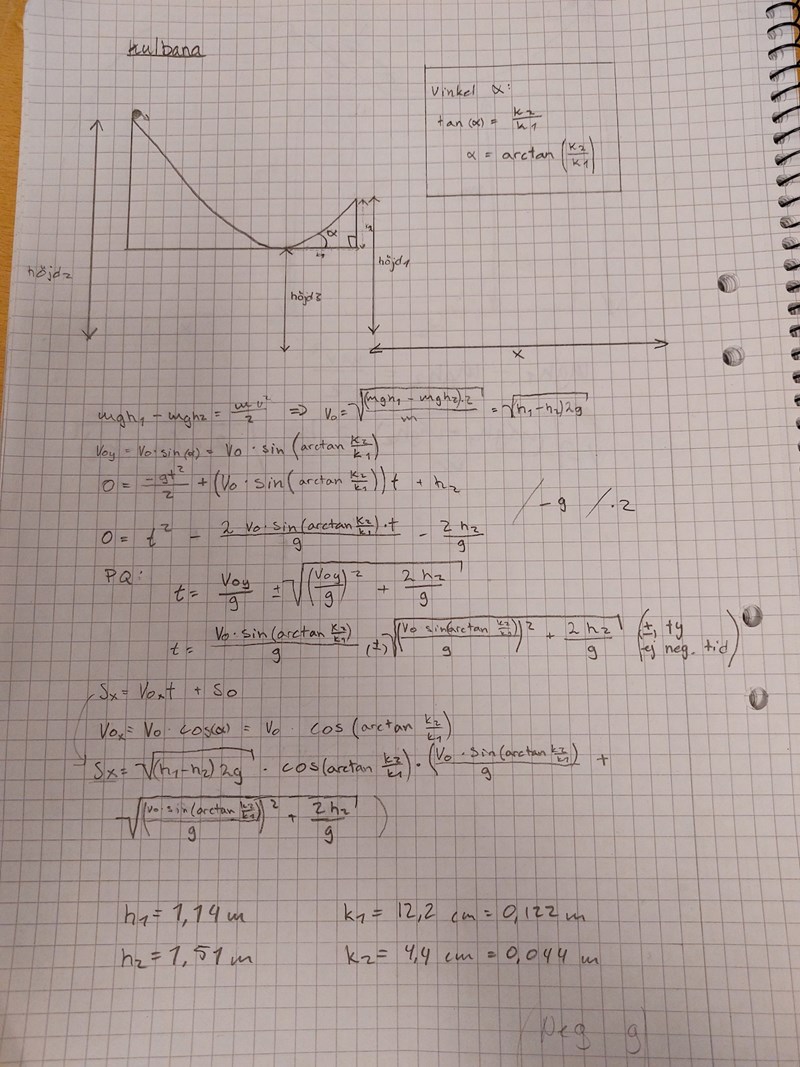 Kulbana
Vinkel α:
tan(α) = k2/k1
α = arctan(k2/k1)
α
höjd2
höjd1
höjd3
x
mgh1 - mgh2 = mv²/2 => v0 = √((mgh1 - mgh2)·2/m) = √(h1-h2)2g
v0y = v0·sin(α) = v0 · sin(arctan k2/k1)
0 = -gt²/2 + (v0 · sin(arctan k2/k1))t + h2 /-g /·2
0 = t² - 2 v0·sin(arctan k2/k1)·t/g - 2h2/g
PQ: t = v0y/g ± √((v0y/g)² + 2h2/g)
t = v0·sin(arctan k2/k1)/g (±) √((v0 sin(arctan k2/k1)/g)² + 2h2/g) (± ty ej neg. tid)
Sx = v0xt + S0
v0x = v0 · cos(α) = v0 · cos(arctan k2/k1)
Sx = √(h1-h2)2g · cos(arctan k2/k1) · (v0 · sin(arctan k2/k1)/g +
√((v0·sin(arctan k2/k1)/g)² + 2h2/g))
h1 = 1,14 m k1 = 12,2 cm = 0,122 m
h2 = 1,51 m k2 = 4,4 cm = 0,044 m
neg g